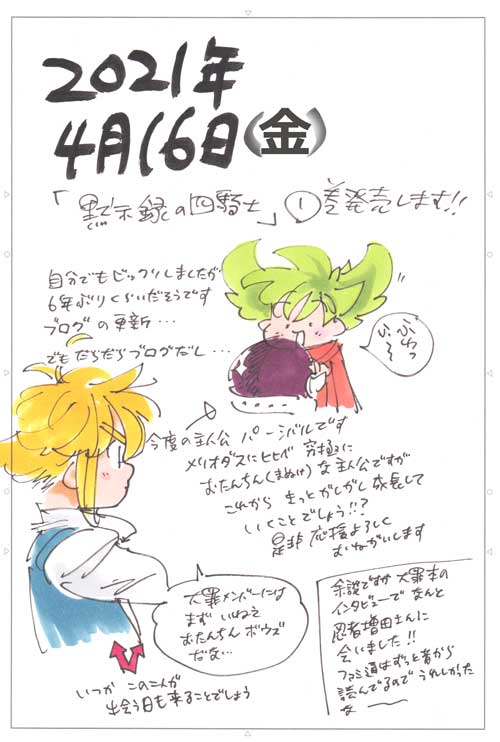 2021年
4月16日(金)
「黙示録の四騎士」①巻発売します!!
自分でもビックリしましたが
6年ぶりくらいだそうです
ブログの更新…
でもだらだらブログだし…
ぷわっ
ふ〜
今度の主人公 パーシバルです
メリオダスにヒヒが 究極に
おたんちん(まぬけ)な主人公ですが
これから きっとがしがし成長して
いくことでしょう!!?
是非 応援よろしく
おねがいします
大罪メンバーには
まず いねえ
おたんちん ボウズ
だな…
いつか この二人が
出会う日も来ることでしょう
余談ですが 大罪本の
インタビューで なんと
忍者増田さんに
会いました!!
ファミ通はずっと昔から
読んでるので うれしかった
なー